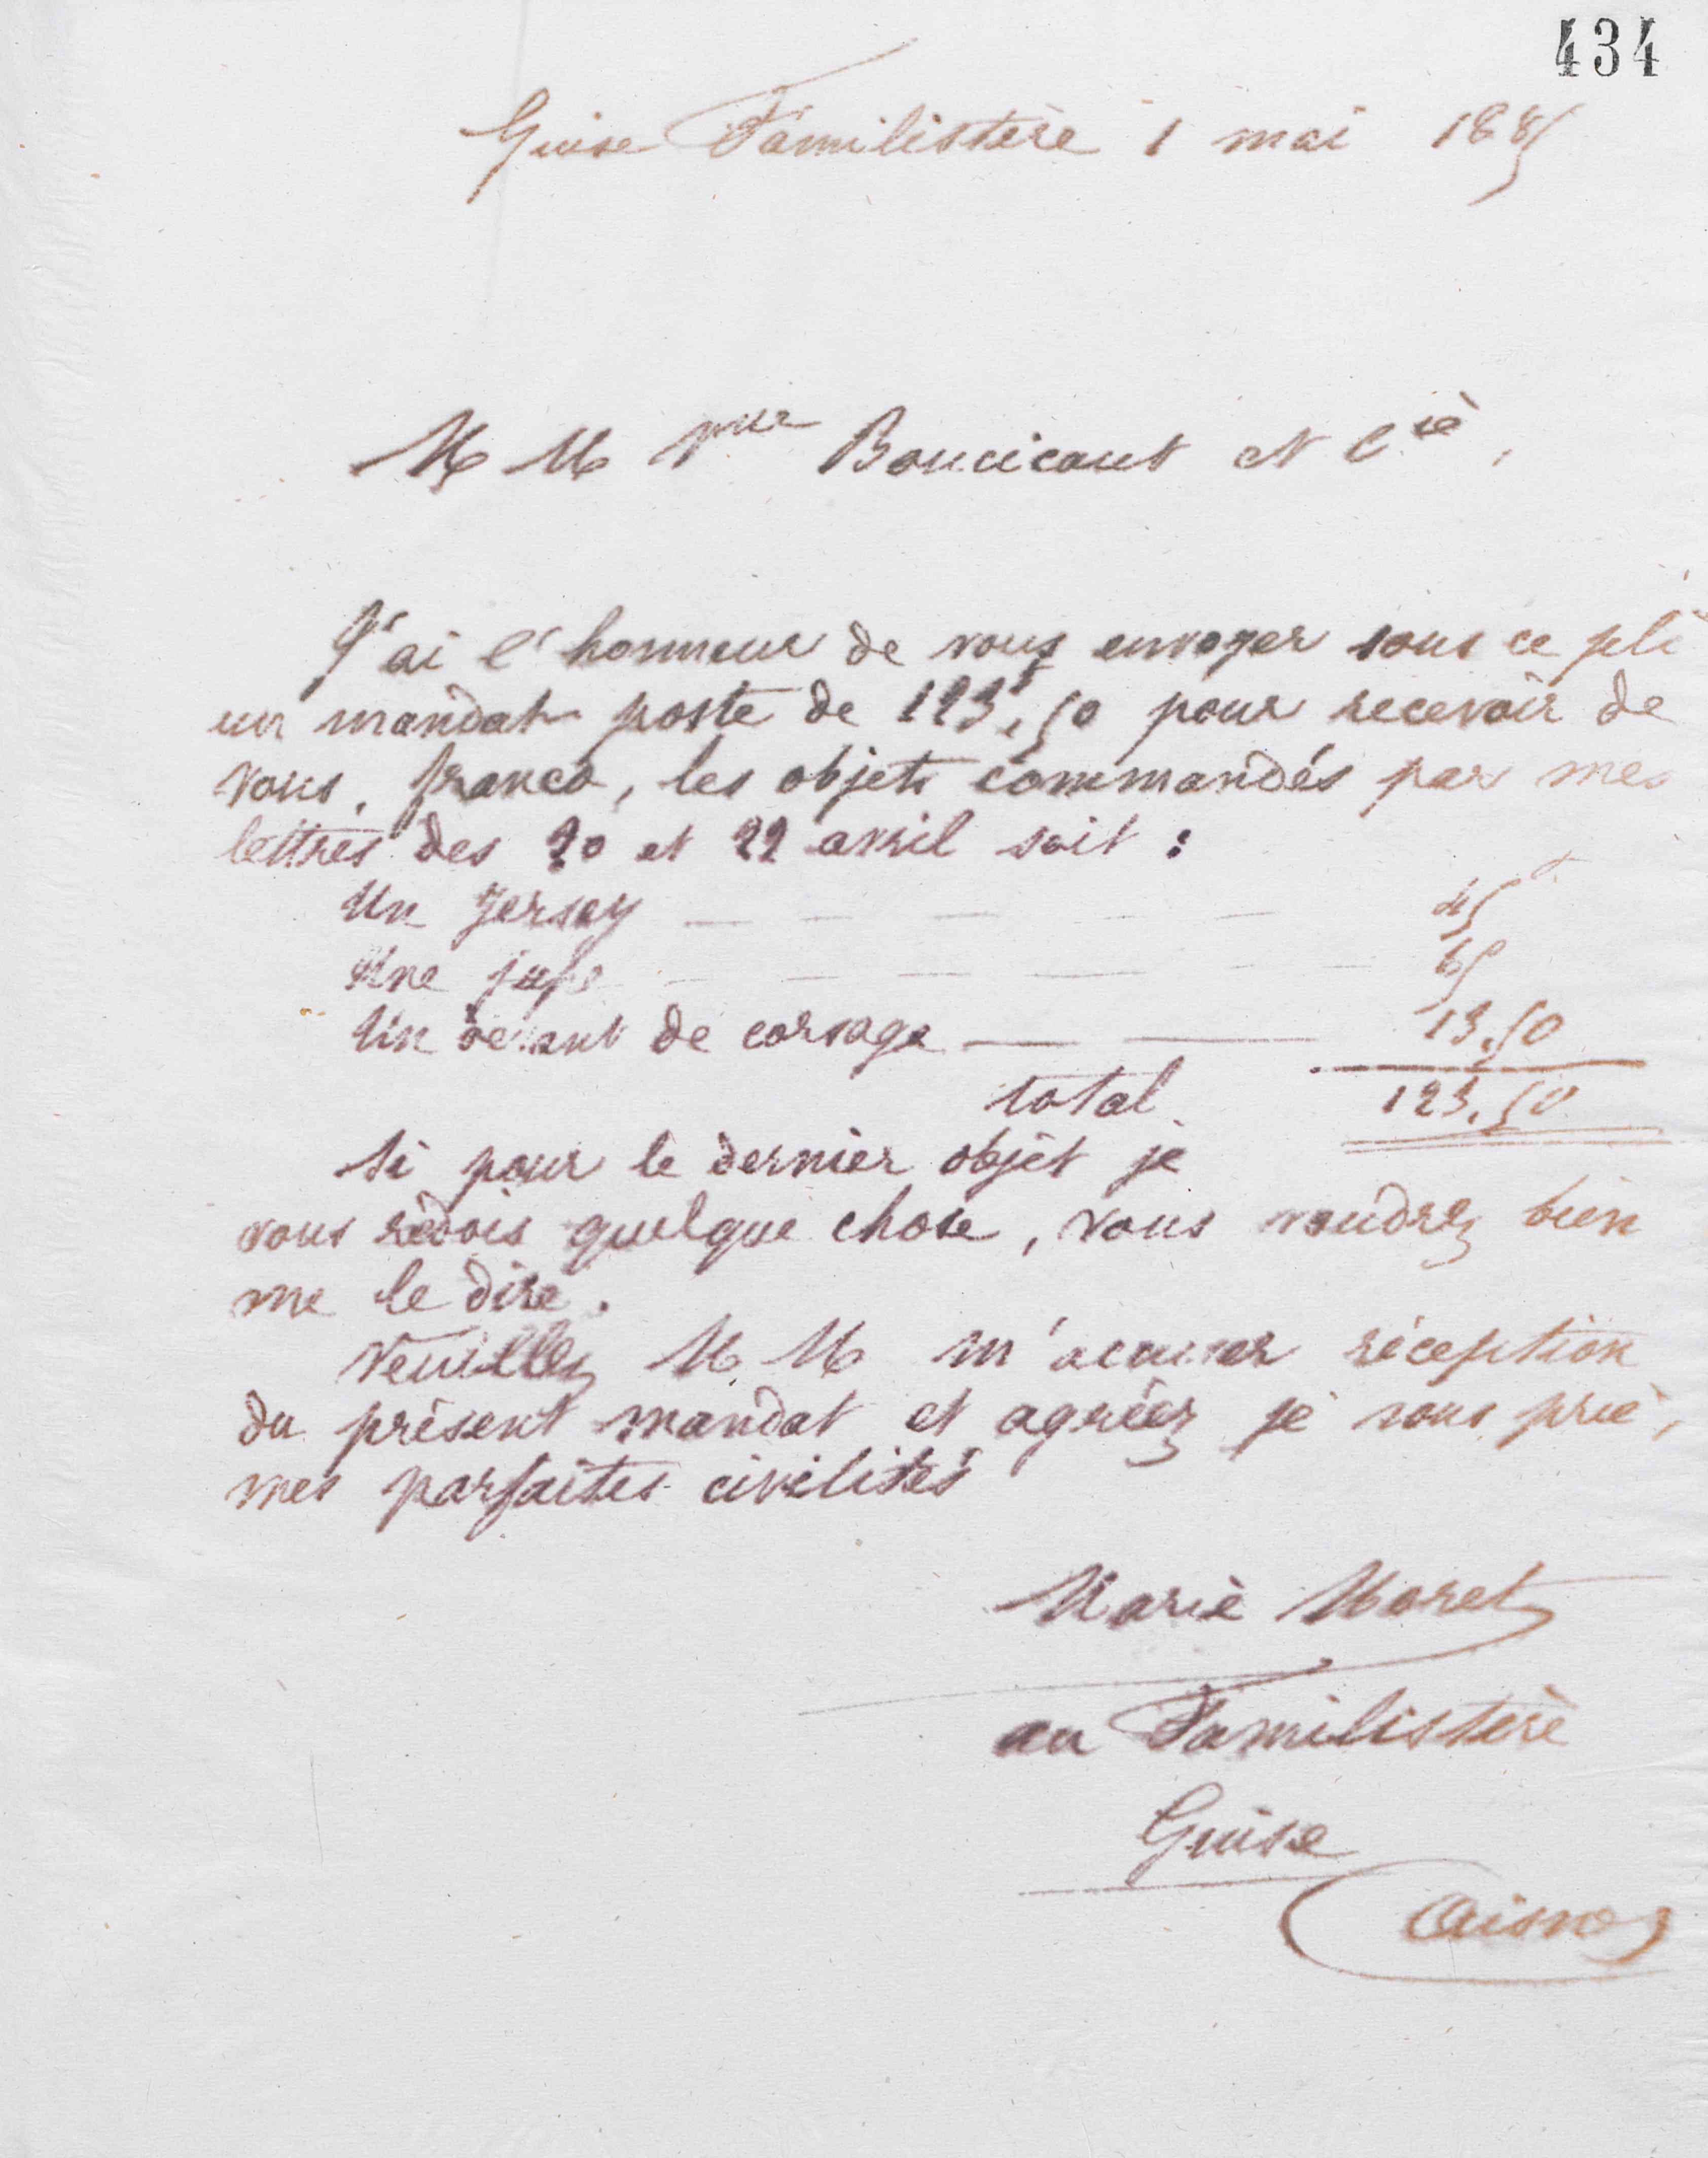 434
Guise Familistère 1 mai 1885
MM Vve Boucicaut et Cie,
J'ai l'honneur de vous envoyer sous ce pli
un mandat poste de 123f,50 pour recevoir de
vous, franco, les objets commandés par mes
lettres des 20 et 22 avril soit :
Un Jersey — — — — — 45f
Une jupe — — — — — — 65
Un devant de corsage — — 13,50
total 123,50
Si pour le dernier objet je
vous redois quelque chose, vous voudrez bien
me le dire.
Veuillez MM m'accuser réception
du présent mandat et agréez je vous prie,
mes parfaites civilités
Marie Moret
au Familistère
Guise
Aisne